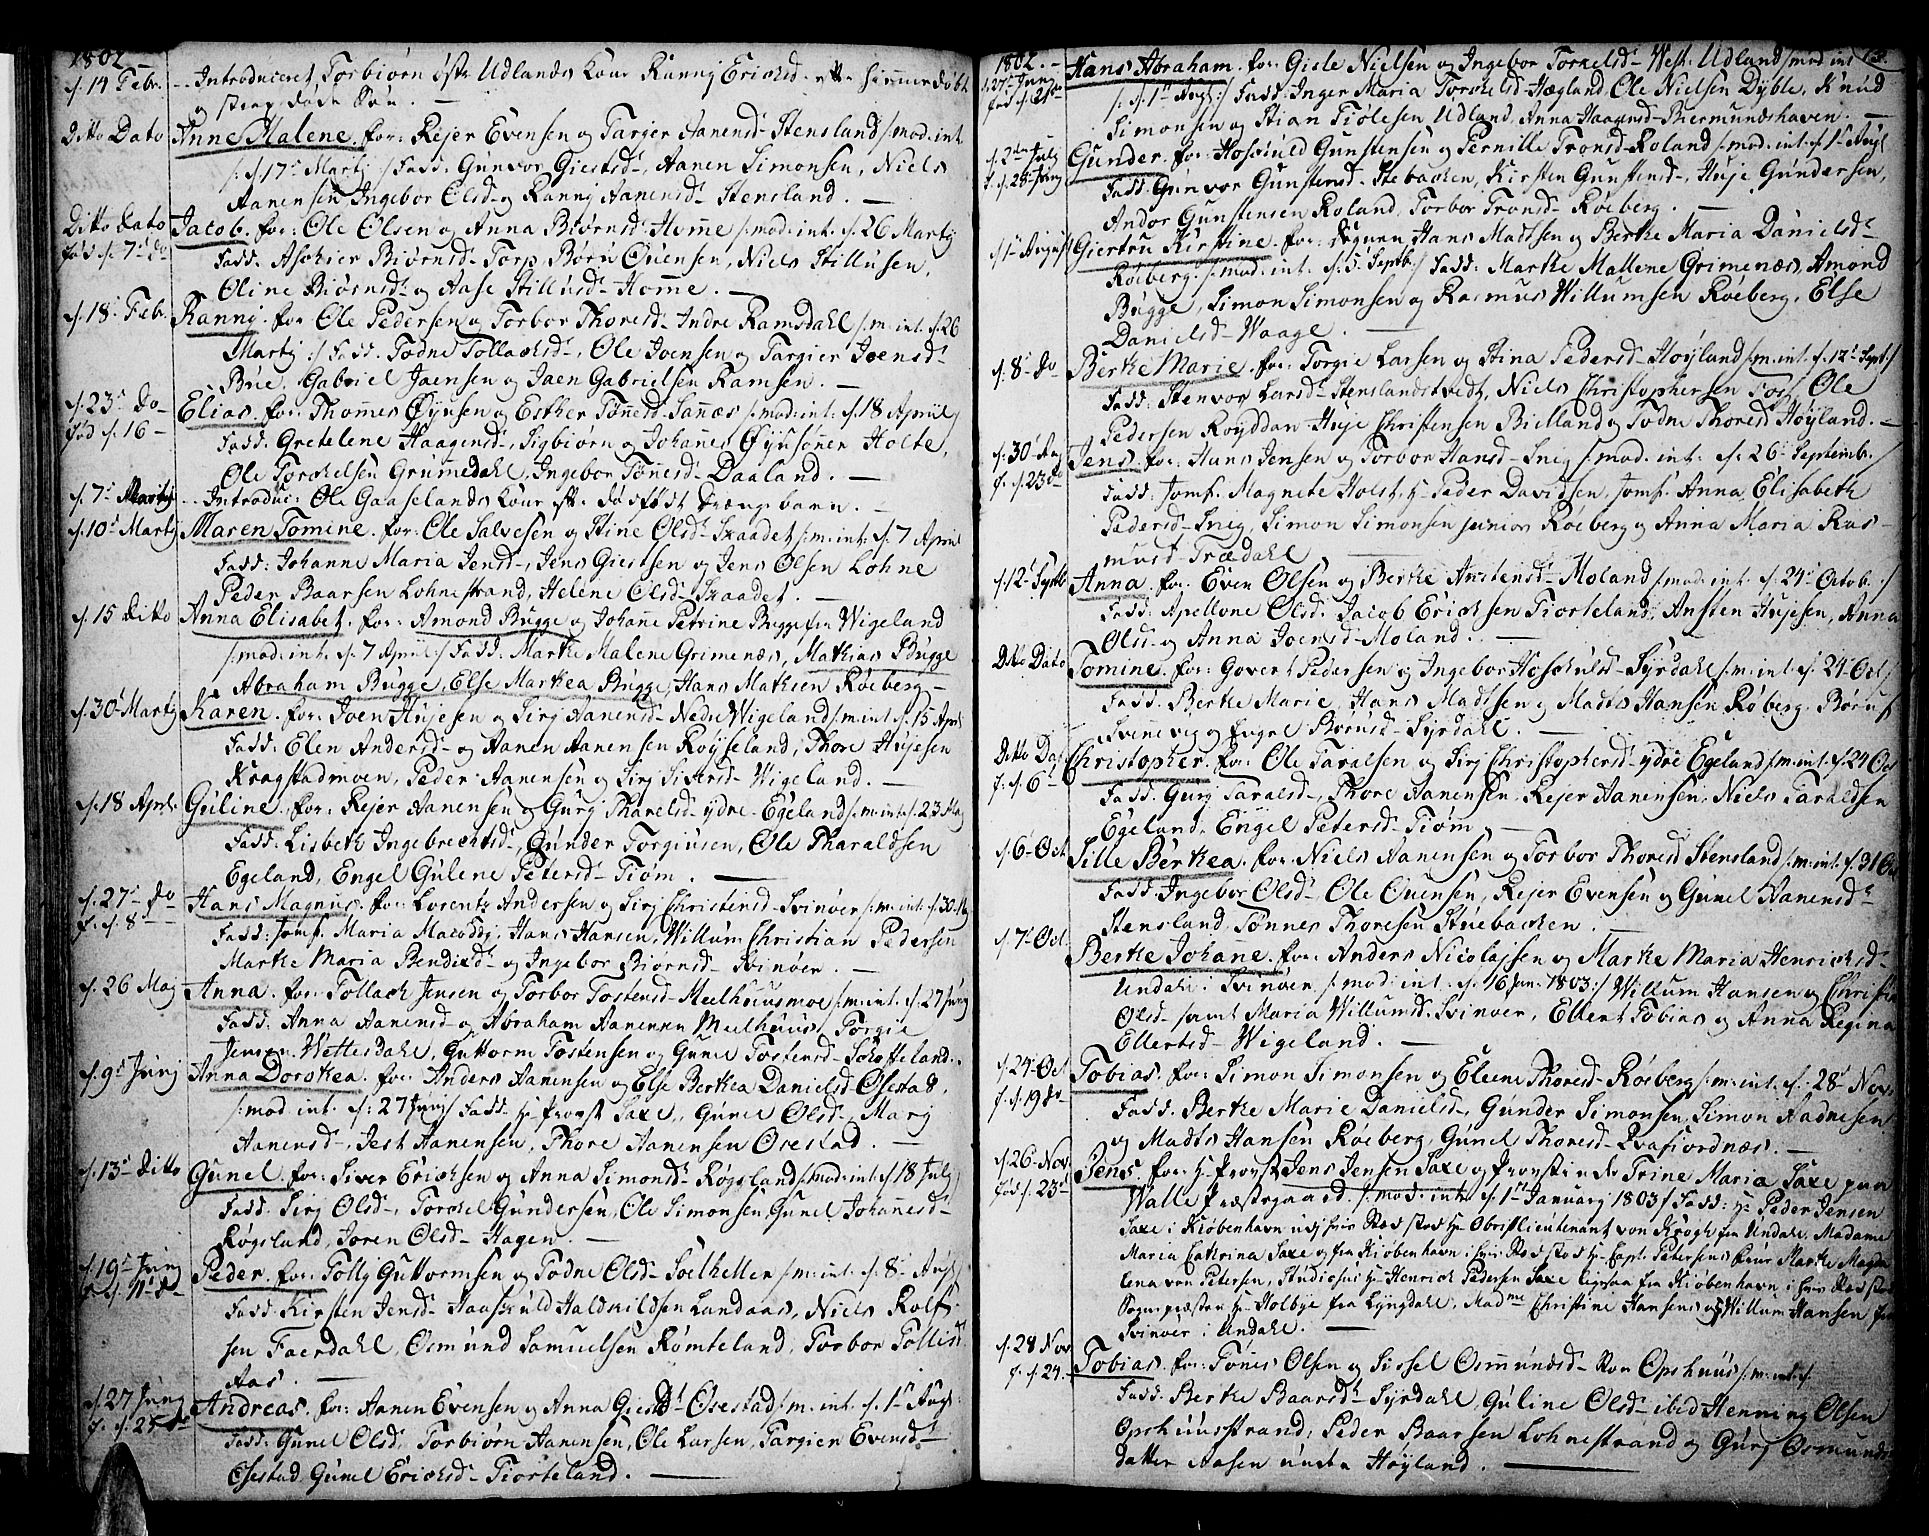 1802
d. 14 Febr. - Introduceret Torbiørn øfte Udlands Kone Ranny Erichsd.
og strax døde Søn. —
Ditto Dato Anne Malene. for: Rejer Evensen og Targer Aanensd- Stensland /:mod: int:
/: d. 17 Martj :/ Fadd: Gunvor Giertsd-, Aanen Simonsen, Niels
Aanensen Ingebor Elsd- og Ranni Aanensd- Stensland. —
Ditto Dato Jacob. for: Ole Olsen og Anna Biørnsd- Homme /:mod: int: d. 26 Martj
fød d. 7 do Fadd: Aschier Biørnsd- Torp, Børu Ouensen, Niels Stillufsen,
Oline Biørnsd- og Aase Stillufsd- Homme. —
d. 18 Febr. Ranni. for Ole Pedersen og Torbor Thoresd- Indre Ramsdahl /:m: int: d. 26
Martj :/ Fadd: Todne Tollachsd-, Ole Joensen og Targier Joensd-
Bue, Gabriel Jaensen og Jaen Gabrielsen Ramsen. —
d. 23 do- Elias. for: Thomes Øynsen og Esther Tønesd- Sanæs /:mod: int: d. 18 April
fød d. 16 - Fadd: Gretelene Haagensd-, Sigbiørn og Johanes Øynsøner Holte,
Ole Torchelsen Grumedahl, Ingebor Tønesd- Daaland. —
d. 7 Martij - Introduc: Ole Gaaselands Kone eft. dødfødt Drengebarn. —
d. 10 Martj Maren Tomine. for: Ole Salvesen og Stine Olsd- Skaadet /:m: int: d. 7 April
Fadd: Johanne Maria Jensd-, Jens Giertsen og Jens Olsen Lohne
Peder Baarsen Lohnestrand, Helene Olsd- Skaadet. —
d. 15 Ditto Anna Elisabet. for: Amond Bugge og Johane Petrine Bugge fra Wigeland
/:mod: int: d. 7 April :/ Fadd: Marthe Malene Grimenæs, Mathias Bugge
Abraham Bugge, Else Marthea Bugge, Hans Mathsen Røeberg. —
d. 30 Martj Karen. for: Joen Hujesen og Sirj Aanensd- Nedre Wigeland /:m: int: d. 15 April
Fadd: Elen Andersd- og Aanen Aanensen Royseland, Thore Hujesen
Kragstadmoen, Peder Aanensen og Sirj Siversd- Wigeland. —
d. 18 April Guline. for: Rejer Aanensen og Gurj Tharelsd- ydre Egeland /:m: int: d. 23 Maj
Fadd: Lisbeth Ingebrechtsd-, Gunder Torgiusen, Ole Tharaldsen
Egeland, Engel Gulene Petersd- Tiøm. —
d. 27 do Hans Magnus. for: Lorentz Andersen og Sirj Christensd- Svinøer /:m: int: d. 30 Maj
f. d. 8 Fadd: Jomf. Maria Macoddy, Hans Hansen, Willum Christian Pedersen
Marthe Maria Bendixd- og Ingebor Biørnsd- Svinøer. —
d. 26 Maj Anna. for: Tollach Jensen og Torbor Tostensd- Meelhuusmoe /:m: int: d. 27 Junj
Fadd: Anna Aanensd- og Abraham Aanensen Meelhuus, Torgie
Jensen Wettesdahl, Guttorm Tostensen og Gunel Tostensd- Schofteland. -
d. 9 Junj Anna Dorothea. for: Anders Aanensen og Else Berthea Danielsd- Øsestad
/:mod: int: d: 27 Junj/ Fadd: Hr Provst Saxe, Gunel Olsd-, Marj
Aanensd-, Jest Aanensen, Thore Aanensen Øsestad. —
d. 13 Ditto Gunel. for: Siver Erichsen og Anna Simonsd- Røgsland /:mod: int: d. 18 Julj
Fadd: Sirj Olsd-, Torchel Gundersen, Ole Simonsen, Gunel Johanesd-
Røgsland, Soren Olsd- Hagen. —
d. 19 Junj Peder. for: Tollj Guttormsen og Todne Olsd- Soelhelle /:m: int: d. 8 Aug
f. d. 11 do Fadd: Kirsten Jensd- Haaskuld Haldkildsen Landaas, Niels Rolf-
sen Faerdahl, Osmund Samuelsen Rømteland, Torbor Tollisd-
Aas. —
d. 27 Junj Andreas. for: Aanen Evensen og Anna Giertsd- Øsestad /:m: int: d. 1 Aug:
f. d. 25 Fadd: Gunel Olsd, Torbiørn Aanensen, Ole Larsen, Targier Evensd-
Øsestad, Gunel Erichsd- Tiorteland. —
1802. -
d. 27 Junj Hans Abraham. for: Gisle Nielsen og Ingebor Torkelsd- West Udland /:mod: int
fød d. 21 /: d. 1 Aug :/ Fadd: Inger Maria Torchelsd- Hægland, Ole Nielsen Dyble, Knud
Simonsen og Stian Tiølesen Udland, Anna Haagensd-
d. 2 Julj Gunder. for: Hoskuld Gunstensen og Pernille Tronsd- Roland /:mod: int: d. 1 Aug
f. d. 28 Junj Fadd: Gunvor Gunstensd- Stebacken, Kirsten Gunstensd-, Huje Gundersen,
Andor Gunstensen Roland, Torbor Tronsd- Røeberg. —
d. 1 August Giertru Kirstine. for: Hans Madtsen og Berthe Maria Danielsd-
Røeberg. /:mod: int: d. 5 Septb:/ Fadd: Marthe Mallene Grimenæs, Amond
Bugge, Simon Simonsen og Rasmus Willumsen Røeberg, Else
Danielsd- Waage. —
d. 8 do Berthe Marie. for: Torgie Larsen og Stina Pedersd- Høyland /:m: int: d. 12 Sept:/
Fadd: Stenvor Larsd- Stenslandstvedt, Niels Christophersen Foss, Ole
Pedersen Royddan Huje Christensen Bielland og Todne Thoresd Høyland. -
d. 30 Aug Jens. for: Hans Jensen og Torbor Hansd- Sneg /:mod: int: d: 26 Septemb:/
f. d. 23 do Fadd: Jomf. Magnete Holst, Hr Peder Davidsen, Jomf. Anna Elisabeth
Pedersd- Sneg, Simon Simonsen junior Røeberg og Anna Maria Ras-
musd- Trædahl —
d. 12 Septb Anna. for: Even Olsen og Berthe Anstensd- Moland /:mod: int: d. 24 Octob:/
Fadd: Apellone Olsd- Jacob Erichsen Tiorteland, Ansten Hujesen, Anna
Olsd- og Anna Joensd- Moland. —
Dito Dato Tomine. for: Govert Pedersen og Ingebor Hoschulsd- Syrdahl /:m: int: d. 24 Oct:/
Fadd: Berthe Marie, Hans Madtsen og Madts Hansen Røberg, Børuf
Svinevig og Engel Børufsd- Syrdahl. —
Ditto Dat Christopher. for: Ole Taralsen og Sirj Christophersd- ydre Egeland /:m: int: d. 24 Oct
f. d. 6 Fadd: Gurj Taralsd-, Thore Aanensen, Rejer Aanensen, Niels Taraldsen
Egeland, Engel Petersd- Tiøm —
d. 6 Oct Sille Berthea. for: Niels Aanensen og Torbor Thoresd Stensland /:m: int: d. 31 Oct
Fadd: Ingebor Olsd- Ole Ouensen, Rejer Evensen og Gunel Aanensd-
Stensland, Tønnes Thoresen Stuebacken. —
d. 7 Oct. Berthe Johane. for: Anders Nicolajsen og Marthe Maria Henrichsd-
Undahl: Svinøer /:mod: int: d. 16 Jan: 1803:/ Willum Hansen og Christi
Olsd- samt Maria Willumsd- Svinøer, Ellert Tobias og Anna Regina
Ellertsd- Wigeland. —
d. 24 Oct Tobias. for: Simon Simonsen og Eleene Thoresd- Røeberg /:m: int: d. 28 Nov.
f. d. 19 do Fadd: Berthe Marie Danielsd-, Gunder Simonsen, Simon Aadnesen
og Madts Hansen Røeberg, Gunel Thoresd- Qvafiordnæs. —
d. 26 Nov. Jens for: Hr Provst Jens Jensen Saxe og Provstinde Trine Maria Saxe paa
fød d. 23 Walle Præstegaard. /:mod: int: d. 1 January 1803/ Fadd: Hr Peder Jensen
Saxe i Kiøbenhavn udj hvis Sted stod Hr Obristlieutenant von Krogh fra Undahl, Madame
Maria Cathrina Saxe og fra Kiøbenhavn i hvis Sted stod Hr Capt. Petersens Frue Marthe Magda
lena von Petersen, Studiosus Hr Henrich Pedersen Saxe ligesaa fra Kiøbenhavn i hvis Sted stod
Sognepræsten Hr Holbye fra Lyngdahl, Madme Christine Hansens og Willum Hansen fra
Svinøer i Undahl. —
d. 28 Nov Tobias. for: Tønes Olsen og Sissel Osmundsd- Opshuus /:m: int: d.
f. d. 24. - Fadd: Berthe Baarsd- Syrdahl, Guline Olsd- ibid Henning Olsen
Opshuusstrand, Peder Baarsen Lohnestrand og Gurj Osmunds
datter Aasen under Høyland. —